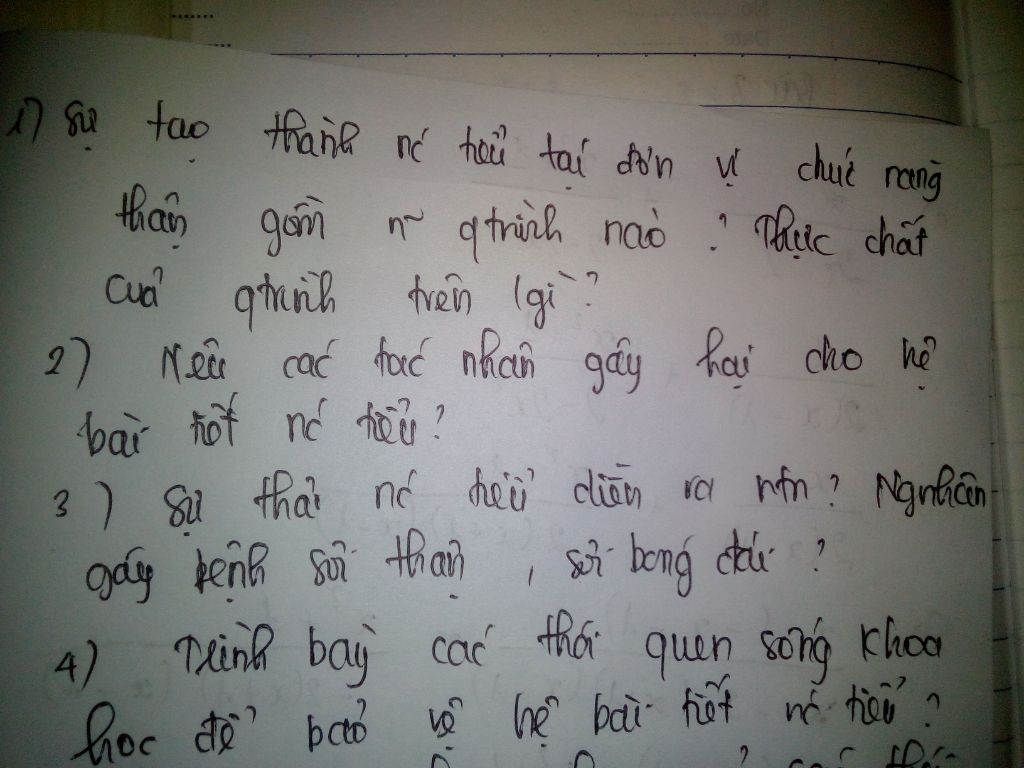 1) Sự tạo thành nc tiểu tại đơn vị chức năng
thận gồm n~ qtrình nào? Thực chất
của qtrình trên lgì?
2) Nêu các tác nhân gây hại cho hệ
bài tiết nc tiểu?
3) Sự thải nc tiểu diễn ra ntn? Ngnhân
gây bệnh sỏi thận, sỏi bóng đái?
4) Trình bày các thói quen sống khoa
học để bảo vệ hệ bài tiết nc tiểu?